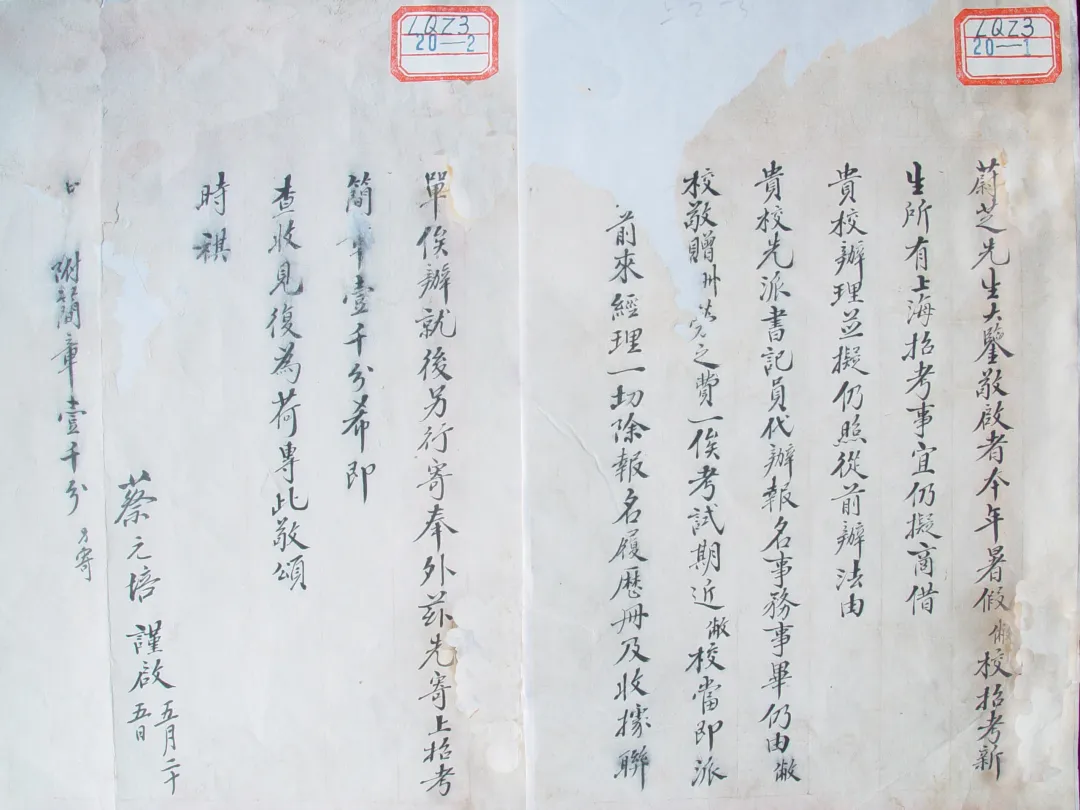 LQZ3
20—1
蔚芝先生大鑒敬啟者今年暑假敝校招考新
生所有上海招考事宜仍擬商借
貴校辦理並擬仍照從前辦法由
貴校先派書記員代辦報名事務事畢仍由敝
校敬贈之費一俟考試期近敝校當即派
前來經理一切除報名履歷冊及收據聯
LQZ3
20—2
單俟辦就後另行寄奉外茲先寄上招考
簡章壹千分希即
查收見復為荷專此敬頌
時祺
蔡元培謹啟 五月二十五日
附簡章壹千分 另寄